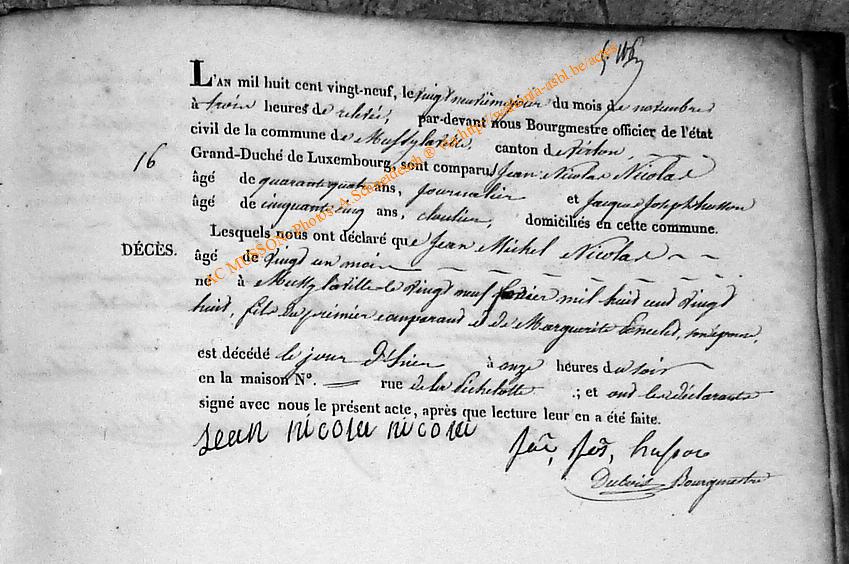 L'AN mil huit cent vingt-neuf, le vingt neuvieme jour du mois de novembre
à trois heures de relevée, par-devant nous Bourgmestre officier de l'état
civil de la commune de Mussylaville, canton de Virton,
16 Grand-Duché de Luxembourg, sont comparus Jean Nicolas Nicolas
âgé de quarante quatre ans, journalier et Jacques Joseph husson
âgé de cinquante cinq ans, cloutier, domiciliés en cette commune.
Lesquels nous ont déclaré que Jean Michel Nicolas
DÉCÈS. âgé de vingt un mois
né à Mussylaville le vingt neuf fevrier mil huit cent vingt
huit, fils du premier comparant et de Marguerite son épouse,
est décédé le jour d'hier à onze heures du soir
en la maison N°. rue de la Pichelotte ; et ont les déclarants
signé avec nous le présent acte, après que lecture leur en a été faite.
jean nicolas nicolas
jac, jos, husson
Dubois Bourgmestre
AC MUSSON Photos A. Schneidesch ®